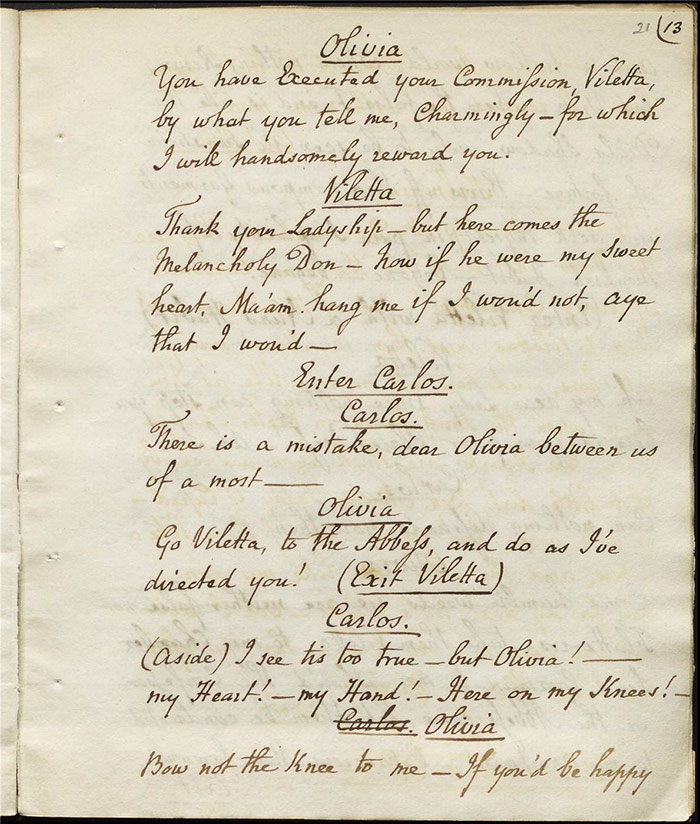 21 (13
Olivia
You have Executed your Commission, Viletta,
by what you tell me, Charmingly – for which
I will handsomely reward you.
Viletta
Thank your Ladyship – but here comes the
Melancholy Don – Now if he were my sweet
heart, Ma'am hang me if I wou'd not, aye
that I wou'd —
Enter Carlos.
Carlos.
There is a mistake, dear Olivia between us
of a most —
Olivia
Go Viletta, to the Abbess, and do as I've
directed you! (Exit Viletta)
Carlos.
(Aside) I see tis too true – but Olivia! —
my Heart! – my Hand! – Here on my Knees! –
Carlos. Olivia
Bow not the Knee to me – If you'd be happy